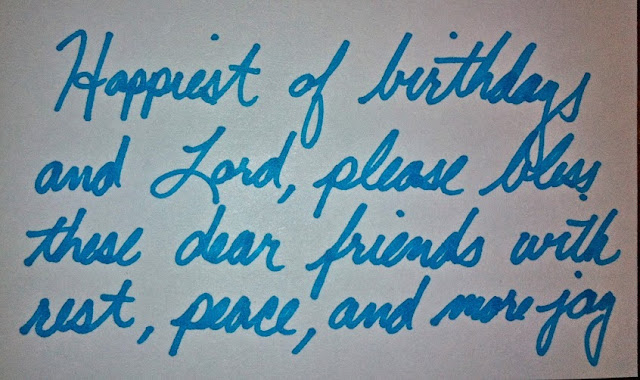 Happiest of birthdays
and Lord, please bless
these dear friends with
rest, peace, and more joy